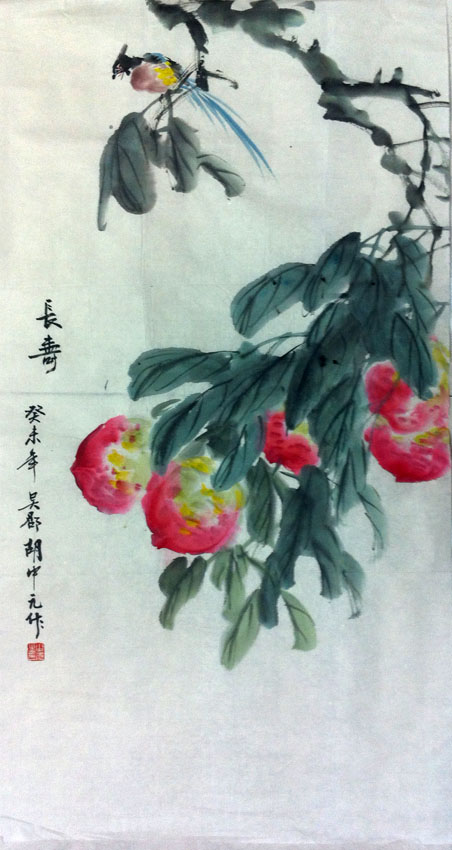 長壽
癸未年吴郡胡中元作